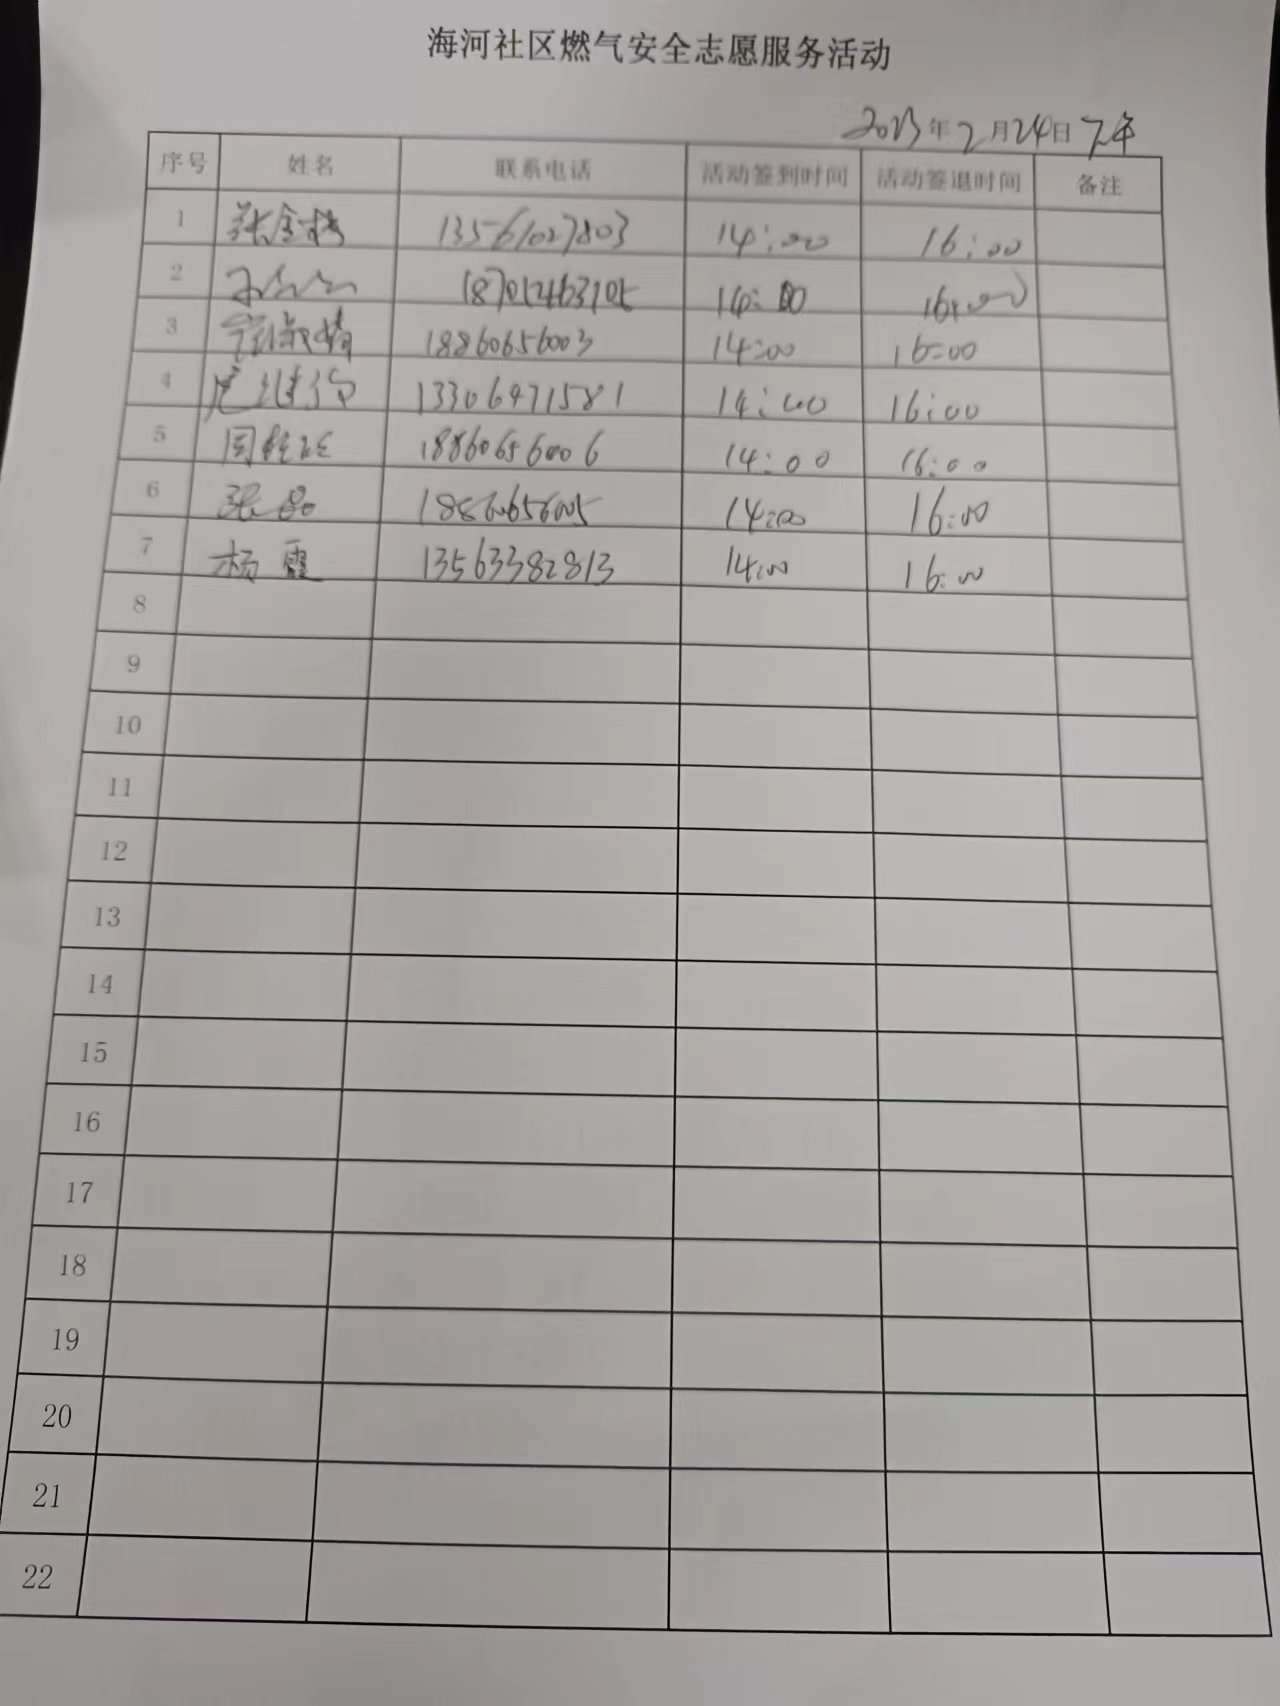 海河社区燃气安全志愿服务活动
2023年2月24日下午
序号 姓名 联系电话 活动签到时间 活动签退时间 备注
1 张金梅 13561027803 14:00 16:00
2 14:00 16:00
3 18860656003 14:00 16:00
4 13306471581 14:00 16:00
5 18860656006 14:00 16:00
6 张磊 18860656005 14:00 16:00
7 杨霞 13563382813 14:00 16:00
8
9
10
11
12
13
14
15
16
17
18
19
20
21
22